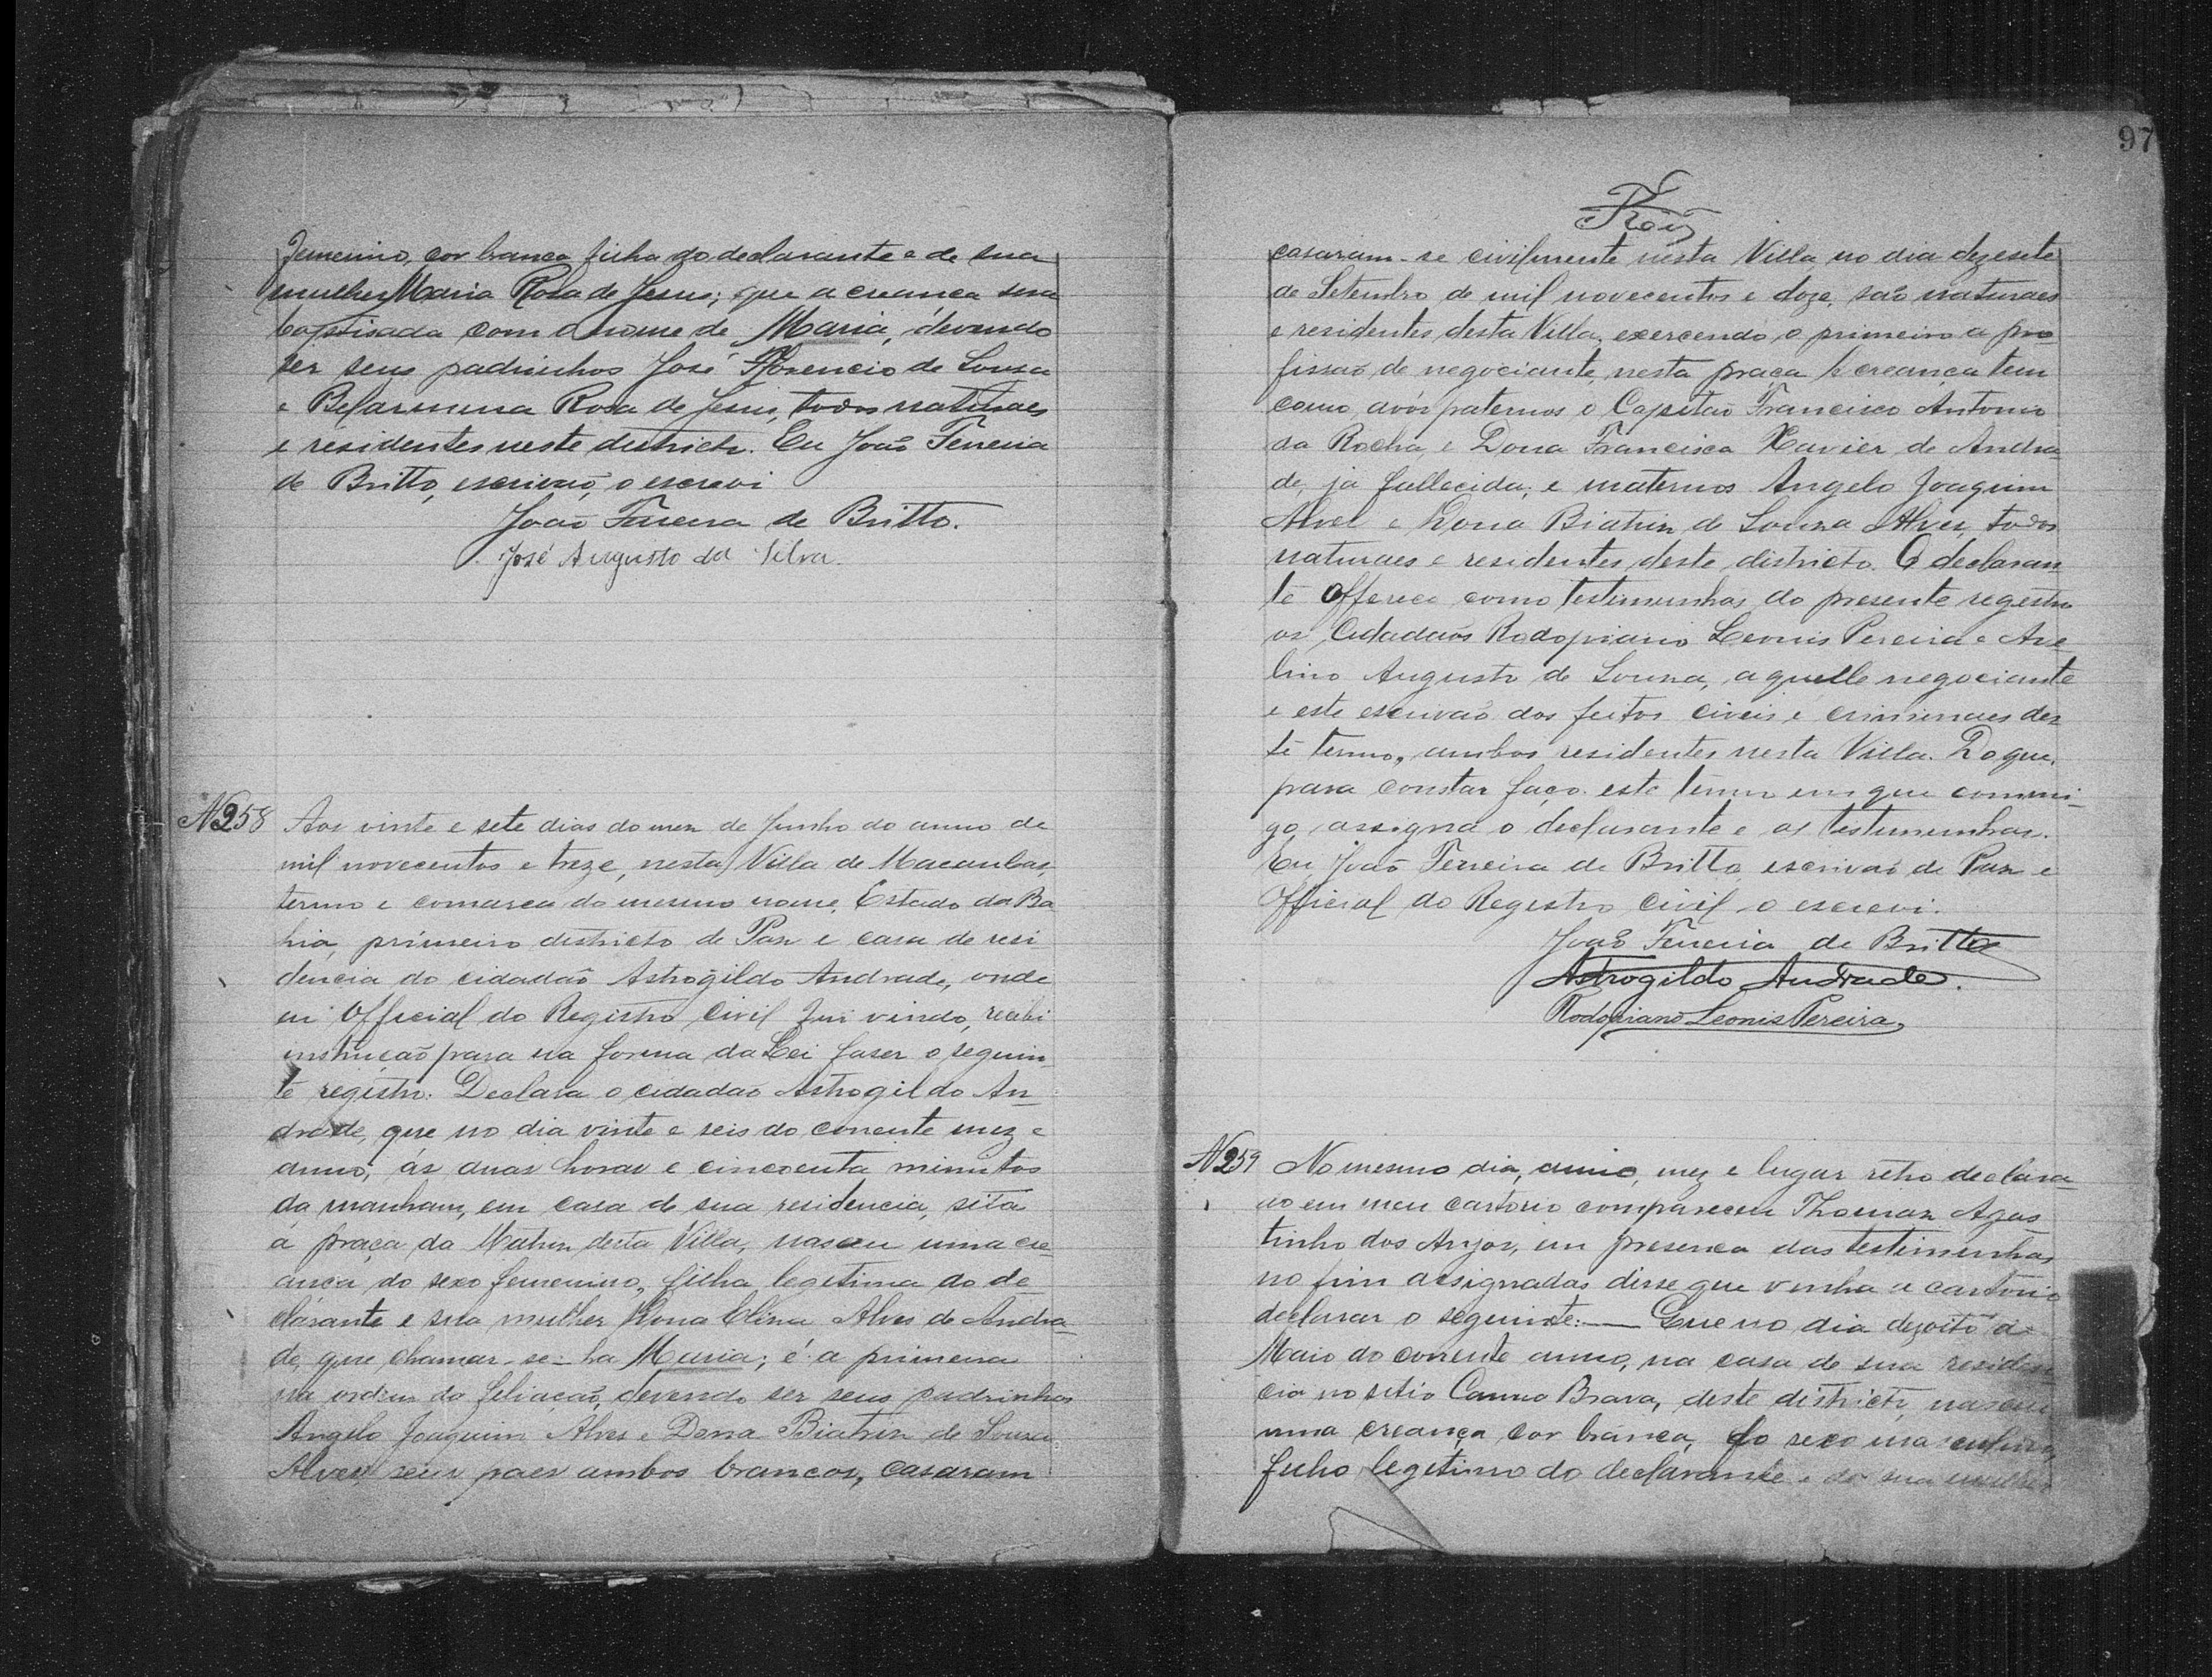 femenino, cor branca filha do declarante e de sua
mulher Maria Rosa de Jesus; que a creança sera
baptisada com o nome de Maria, devendo
ser seus padrinhos José Florencio de Sousa
e Belarmina Rosa de Jesus, todos naturaes
e residentes neste districto. Eu João Ferreira
de Britto, escrivão, o escrevi
João Ferreira de Britto.
José Augusto da Silva.
N258 Aos vinte e sete dias do mez de Junho do anno de
mil novecentos e treze, nesta Villa de Macaubas,
termo e comarca do mesmo nome, Estado da Ba
hia, primeiro districto de Paz e casa de resi
dencia do cidadão Astrogildo Andrade, onde
eu Official do Registro Civil fui vindo, recebi
instrucção para na forma da Lei faser o seguin
te registro. Declara o cidadão Astrogildo An
drade, que no dia vinte e seis do corrente mez e
anno, ás duas horas e cincoenta minutos
da manham, em casa de sua residencia, sita
a praça da Matriz desta Villa, nasceu uma cre
ança do sexo femenino, filha legitima do de
clarante e sua mulher Dona Olina Alves de Andra
de, que chamar-se-ha Maria; é a primeira
na ordem da feliação, devendo ser seus padrinhos
Angelo Joaquim Alves e Dona Biatriz de Souza
Alves, seus paes ambos brancos, casaram
97
casaram-se civilmente nesta Villa no dia dezesete
de Setembro de mil novecentos e doze, são naturaes
e residentes desta Villa, exercendo o primeiro a pro
fissão de negociante, nesta praça. A creança tem
como avós paternos o Capitão Francisco Antonio
da Rocha, e Dona Francisca Xavier de Andra
de, já fallecida; e maternos Angelo Joaquim
Alvel e Dona Biatriz de Souza Alves, todos
naturaes e residentes deste districto. O declaran
te offerece como testimunhas do presente registro
os Cidadãos Rodopiano Leonis Pereira e Ave
lino Augusto de Souza, aquelle negociante
e este escrivão dos feitos civeis e criminaes des
te termo, ambos residentes nesta Villa. Do que,
para constar faço este termo em que commi-
go, assigna o declarante e as testimunhas.
Eu, João Ferreira de Britto escrivão de Paz e
Official do Registro Civil o escrevi.
João Ferreira de Britto
Astrogildo Andrade.
Rodopiano Leonis Pereira,
N259 No mesmo dia, anno, mez e lugar retro declara
do em meu cartorio compareceu Thomaz Agos
tinho dos Anjos, em presença das testimunhas
no fim assignadas disse que vinha a cartorio
declarar o seguinte: — Que no dia dezoito de
Maio do corrente anno, na casa de sua residen
cia no sitio Canna Brava, deste districto, nasceu
uma creança cor branca, do sexo masculino,
filho legitimo do declarante e de sua mulher